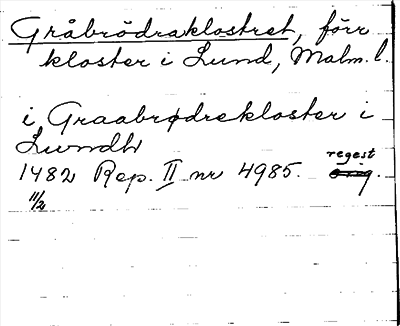 Gråbrödraklostret, förr
kloster i Lund, Malm. l.
i Graabrødrekloster i
Lundh
1482 Rep. II nr 4985. regest orig.
11/2